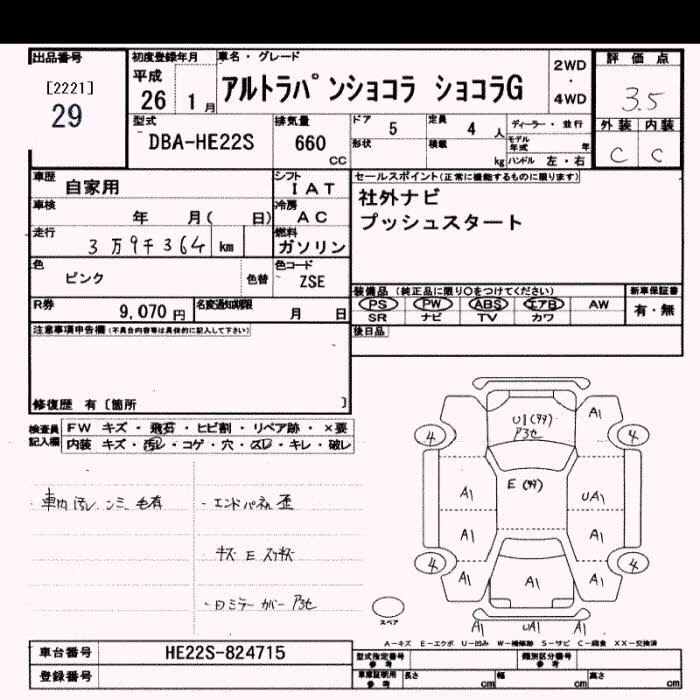 出品番号
[2221]
29
初度登録年月
平成
26 1 月
車名・グレード
アルトラパンショコラ ショコラG
2WD
・
4WD
評価点
3.5
外装 内装
C C
型式
DBA-HE22S
排気量
660
CC
ドア 5
定員 4 人
形状
積載 kg
ディーラー・並行
モデル年式 年
ハンドル 左・右
車歴
自家用
シフト
IAT
車検
年 月( 日)
冷房
AC
走行
3万9千364 km
燃料
ガソリン
色
ピンク
色替
色コード
ZSE
R券
9,070 円
名変通知期限
月 日
セールスポイント(正常に機能するものに限ります)
社外ナビ
プッシュスタート
装備品 (純正品に限り○をつけてください)
PS PW ABS エアB AW
SR ナビ TV カワ
新車保証書
有・無
後日品
注意事項申告欄(不具合内容等は具体的に記入して下さい)
修復歴 有〔箇所 〕
検査員
記入欄
FW キズ・飛石・ヒビ割・リペア跡・×要
内装 キズ・汚レ・コゲ・穴・スレ・キレ・破レ
・車内汚レ シミ 毛有
・エンドパネル歪
キズ E スリキズ
・ロミラーカバーアセ
U1(钓)
アセ
A1
4
4
E(钓)
A1
UA1
A1
A1
4
4
A1
A1
A1
A1 UA1 A1
スペア
A-キズ E-エクボ U-凹み W-補修跡 S-サビ C-腐食 XX-交換済
車台番号
HE22S-824715
登録番号
型式指定番号
参考
類別区分番号
参考
車庫証明用
参考
長さ cm
幅 cm
高さ cm